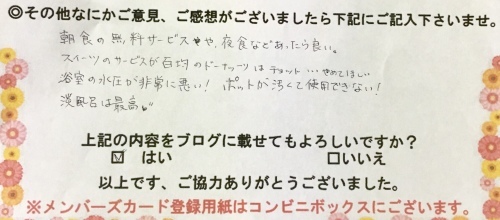 ◎その他なにかご意見、ご感想がございましたら下記にご記入下さいませ。
朝食の無料サービスや、夜食などあったら良い。
スイーツのサービスが百均のドーナッツはチョット…やめてほしい
浴室の水圧が非常に悪い！ ポットが汚くて使用できない！
漢風呂は最高
上記の内容をブログに載せてもよろしいですか？
☑はい □いいえ
以上です、ご協力ありがとうございました。
※メンバーズカード登録用紙はコンビニボックスにございます。